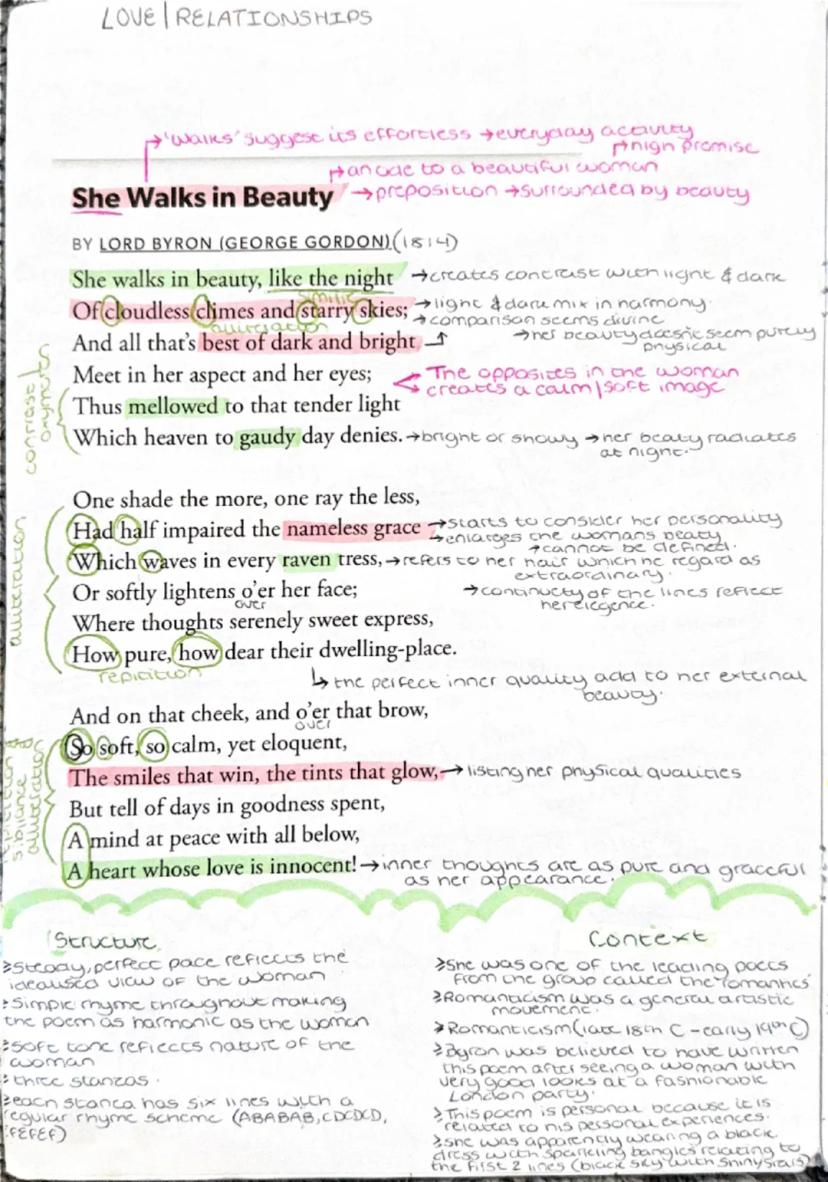 LOVE | RELATIONSHIPS
→'Walks' suggest its effortless →everyday activity
→high promise
→an ode to a beautiful woman
She Walks in Beauty →preposition →surrounded by beauty
BY LORD BYRON (GEORGE GORDON)(1814)
She walks in beauty, like the night →creates contrast with light & dark
similie
Of cloudless climes and starry skies; →light & dark mix in harmony.
alliteration →comparison seems divine
→her beauty doesn't seem purely
physical
And all that's best of dark and bright
Meet in her aspect and her eyes; The opposites in the woman
creates a calm/soft image
contrast/
oxymorons
Thus mellowed to that tender light
Which heaven to gaudy day denies. →bright or showy →her beaty radiates
at night.
One shade the more, one ray the less,
alliteration
Had half impaired the nameless grace →starts to consider her personality
→enlarges the womans beaty
→cannot be defined.
Which waves in every raven tress, →refers to her hair which he regard as
extraordinary.
Or softly lightens o'er her face; →continuety of the lines reflect
over her elegence.
Where thoughts serenely sweet express,
How pure, how dear their dwelling-place.
repitition
↳the perfect inner quality add to her external
beauty.
And on that cheek, and o'er that brow,
over
repitition &
sibilance
alliteration
So soft, so calm, yet eloquent,
The smiles that win, the tints that glow, →listing her physical qualities
But tell of days in goodness spent,
A mind at peace with all below,
A heart whose love is innocent! →inner thoughts are as pure and graceful
as her appearance.
Structure
>Steady, perfect pace reflects the
idealised view of the woman
>Simple rhyme throughout making
the poem as harmonic as the women
>soft tone reflects nature of the
woman
>three stanzas.
>each stanza has six lines with a
regular rhyme scheme (ABABAB, CDCDCD,
EFEFEF)
Context
>She was one of the leading poets
from the group called the 'romantics'
>Romanticism was a general artistic
movement.
>Romanticism (late 18th C - early 19th C)
>Byron was believed to have written
this poem after seeing a woman with
very good looks at a fashionable
London party.
>This poem is personal because it is
related to his personal experiences.
>she was apparently wearing a black
dress with sparkling bangles relating to
the first 2 lines (black sky with shiny stars)